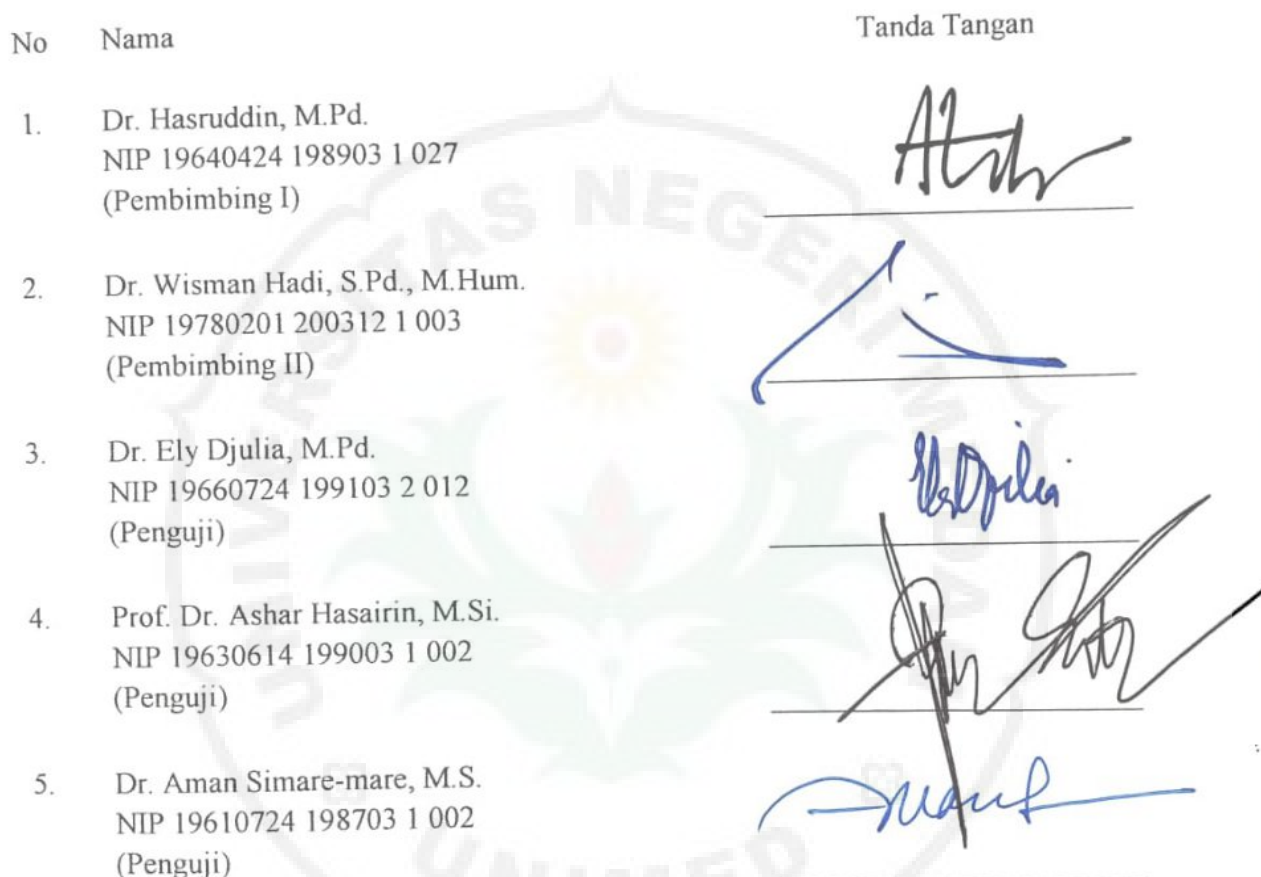 No Nama Tanda Tangan
1. Dr. Hasruddin, M.Pd.
NIP 19640424 198903 1 027
(Pembimbing I)
2. Dr. Wisman Hadi, S.Pd., M.Hum.
NIP 19780201 200312 1 003
(Pembimbing II)
3. Dr. Ely Djulia, M.Pd.
NIP 19660724 199103 2 012
(Penguji)
4. Prof. Dr. Ashar Hasairin, M.Si.
NIP 19630614 199003 1 002
(Penguji)
5. Dr. Aman Simare-mare, M.S.
NIP 19610724 198703 1 002
(Penguji)
UNIVERSITAS NEGERI MEDAN
UNIMED